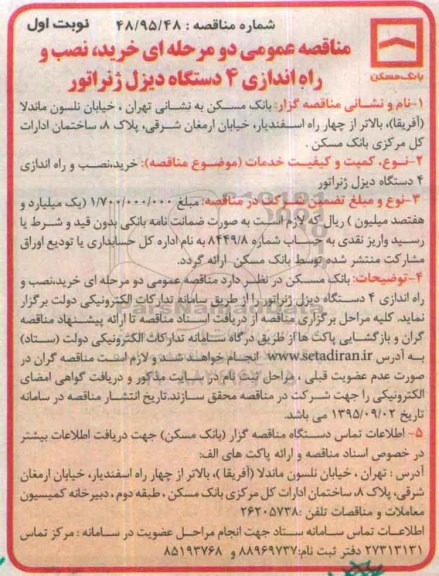 شماره مناقصه : ۴۸/۹۵/۴۸
نوبت اول
بانک مسکن
مناقصه عمومی دو مرحله ای خرید، نصب و
راه اندازی ۴ دستگاه دیزل ژنراتور
۱-نام و نشانی مناقصه گزار: بانک مسکن به نشانی تهران ، خیابان نلسون ماندلا
(آفریقا)، بالاتر از چهار راه اسفندیار، خیابان ارمغان شرقی، پلاک ۸، ساختمان ادارات
کل مرکزی بانک مسکن .
۲-نوع، کمیت و کیفیت خدمات (موضوع مناقصه): خرید،نصب و راه اندازی
۴ دستگاه دیزل ژنراتور
۳-نوع و مبلغ تضمین شرکت در مناقصه: مبلغ ۱/۷۰۰/۰۰۰/۰۰۰ (یک میلیارد و
هفتصد میلیون ) ریال که لازم است به صورت ضمانت نامه بانکی بدون قید و شرط یا
رسید واریز نقدی به حساب شماره ۸۴۴۹/۸ به نام اداره کل حسابداری یا تودیع اوراق
مشارکت منتشر شده توسط بانک مسکن ارائه گردد.
۴-توضیحات: بانک مسکن در نظر دارد مناقصه عمومی دو مرحله ای خرید،نصب و
راه اندازی ۴ دستگاه دیزل ژنراتور را از طریق سامانه تدارکات الکترونیکی دولت برگزار
نماید. کلیه مراحل برگزاری مناقصه از دریافت اسناد مناقصه تا ارائه پیشنهاد مناقصه
گران و بازگشایی پاکت ها از طریق درگاه سامانه تدارکات الکترونیکی دولت (ستاد)
به آدرس www.setadiran.ir انجام خواهند شد و لازم است مناقصه گران در
صورت عدم عضویت قبلی ، مراحل ثبت نام در سایت مذکور و دریافت گواهی امضای
الکترونیکی را جهت شرکت در مناقصه محقق سازند.تاریخ انتشار مناقصه در سامانه
تاریخ ۱۳۹۵/۰۹/۰۲ می باشد.
۵- اطلاعات تماس دستگاه مناقصه گزار (بانک مسکن) جهت دریافت اطلاعات بیشتر
در خصوص اسناد مناقصه و ارائه پاکت های الف:
آدرس : تهران ، خیابان نلسون ماندلا (آفریقا )، بالاتر از چهار راه اسفندیار، خیابان ارمغان
شرقی، پلاک ۸، ساختمان ادارات کل مرکزی بانک مسکن ، طبقه دوم ، دبیرخانه کمیسیون
معاملات و مناقصات تلفن :۲۶۲۰۵۷۳۸
اطلاعات تماس سامانه ستاد جهت انجام مراحل عضویت در سامانه : مرکز تماس
۲۷۳۱۳۱۳۱ دفتر ثبت نام:۸۸۹۶۹۷۳۷ و ۸۵۱۹۳۷۶۸